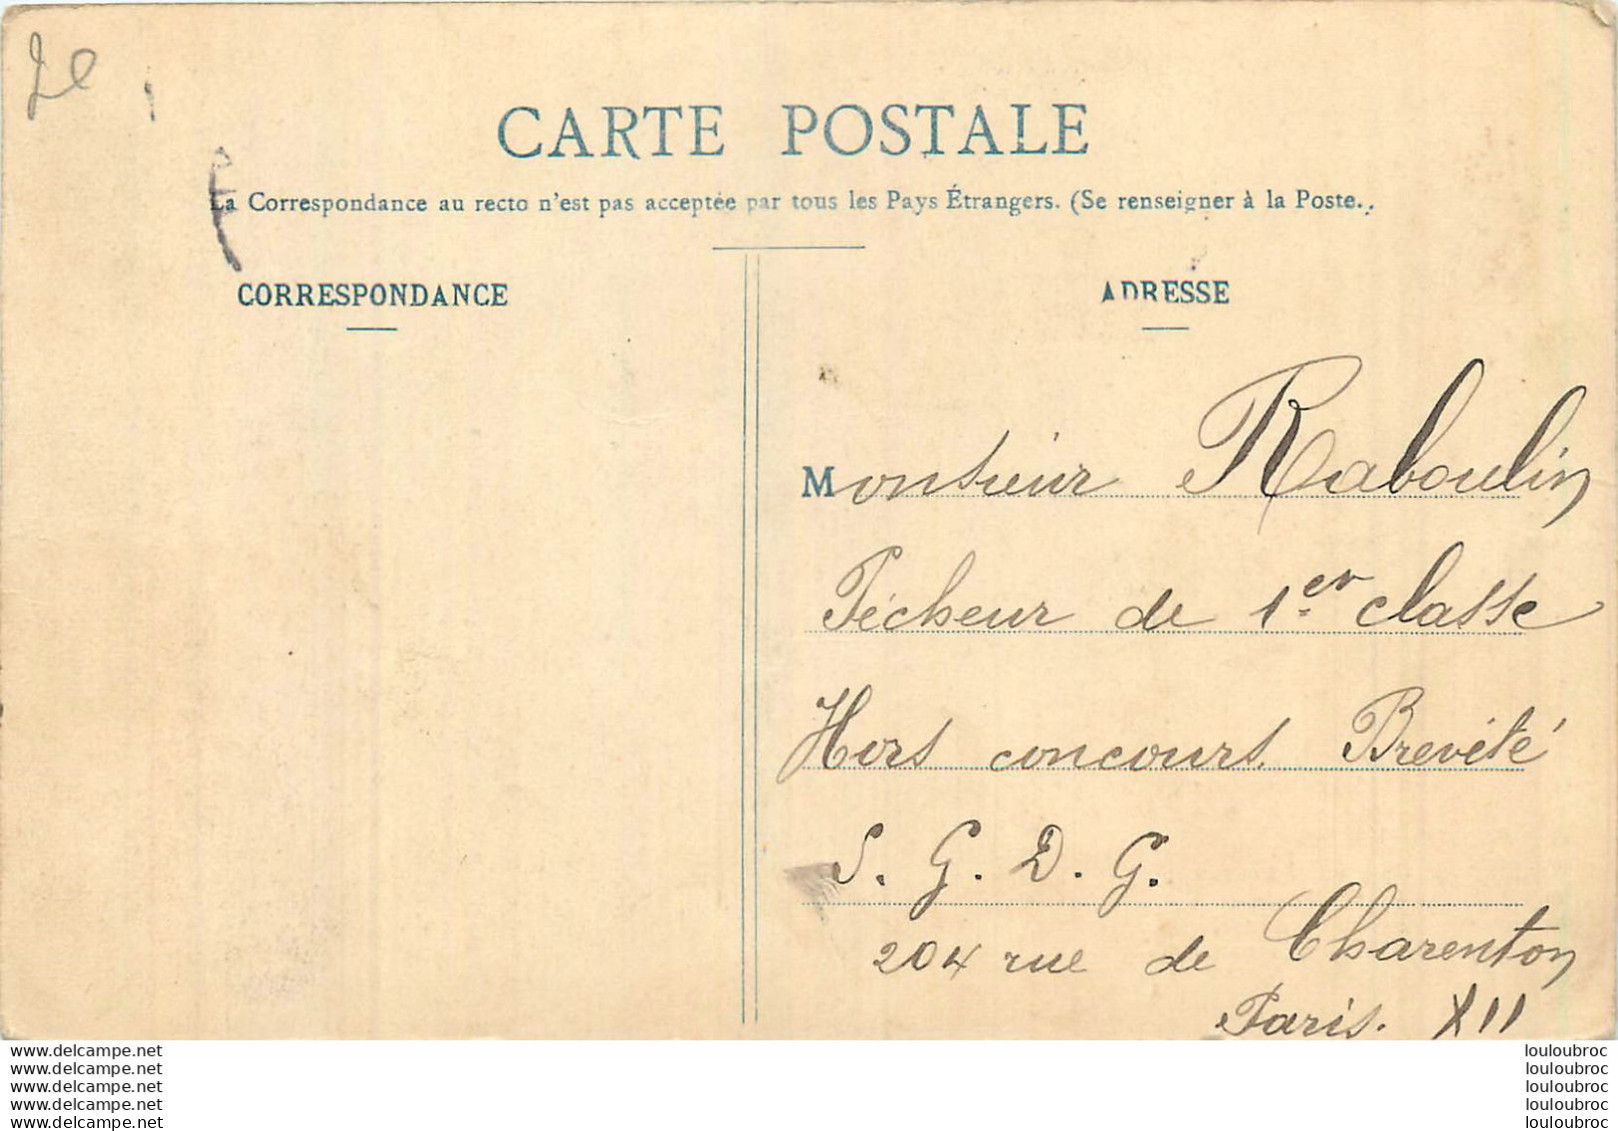 2e
CARTE POSTALE
La Correspondance au recto n'est pas acceptée par tous les Pays Étrangers. (Se renseigner à la Poste.)
CORRESPONDANCE
ADRESSE
Monsieur Raboulin
Pécheur de 1.er classe
Hors concours Breveté
S. G. D. G.
204 rue de Charenton
Paris. XII
www.delcampe.net
www.delcampe.net
www.delcampe.net
www.delcampe.net
www.delcampe.net
louloubroc
louloubroc
louloubroc
louloubroc
louloubroc